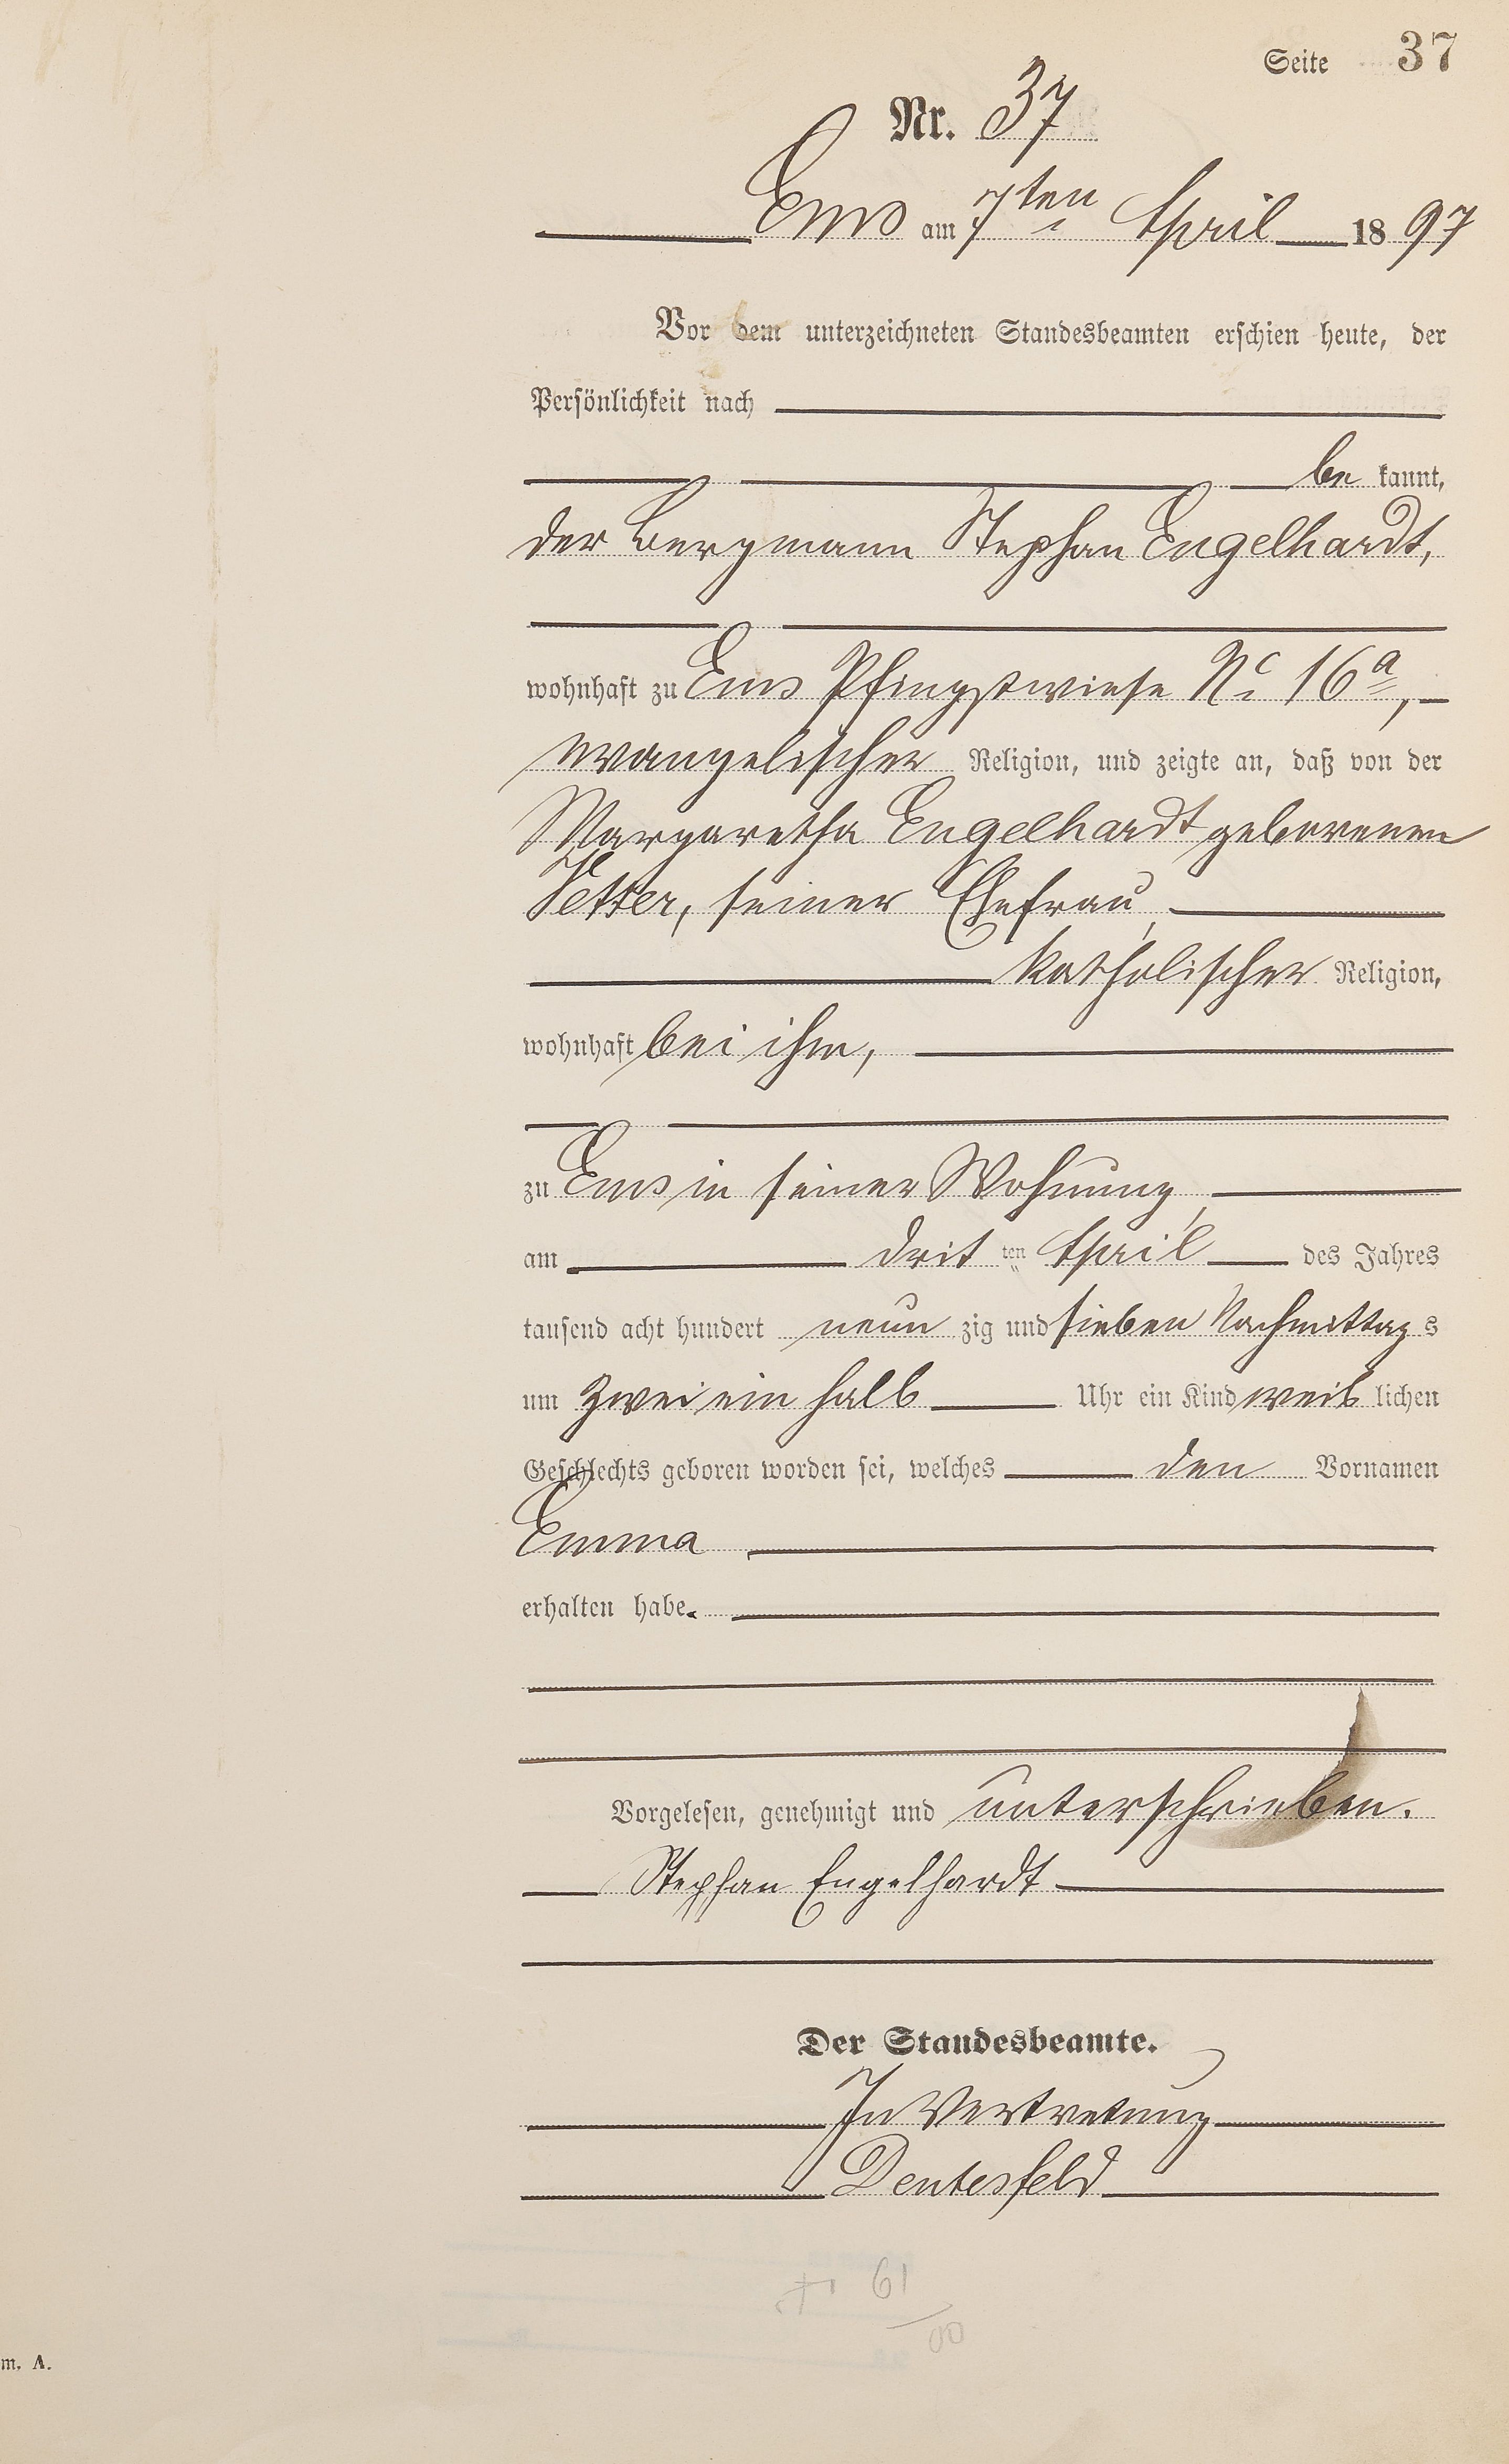 Seite 37
Nr. 37
Ems am 7ten April 1897
Vor dem unterzeichneten Standesbeamten erschien heute, der
Persönlichkeit nach
be kannt,
der Bergmann Stephan Engelhardt,
wohnhaft zu Ems Pfingstwiese No 16a,
evangelischer Religion, und zeigte an, daß von der
Margaretha Engelhardt geborenen
seiner Ehefrau,
katholischer Religion,
wohnhaft bei ihm,
zu Ems in seiner Wohnung,
am drit ten April des Jahres
tausend acht hundert neun zig und sieben Nachmittag s
um zwei ein halb Uhr ein Kind weib lichen
Geschlechts geboren worden sei, welches den Vornamen
Emma
erhalten habe.
Vorgelesen, genehmigt und unterschrieben.
Stephan Engelhardt
Der Standesbeamte.
In Vertretung
61
m. A.